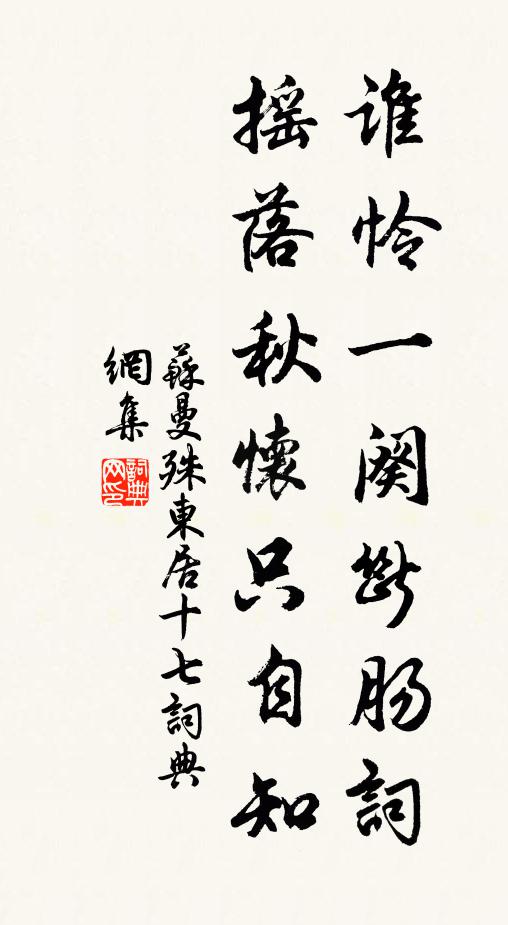 誰怜一闋斷肠詞
摇落秋懷只自知
蘇曼殊東居十七詞典
網集
詞典網印